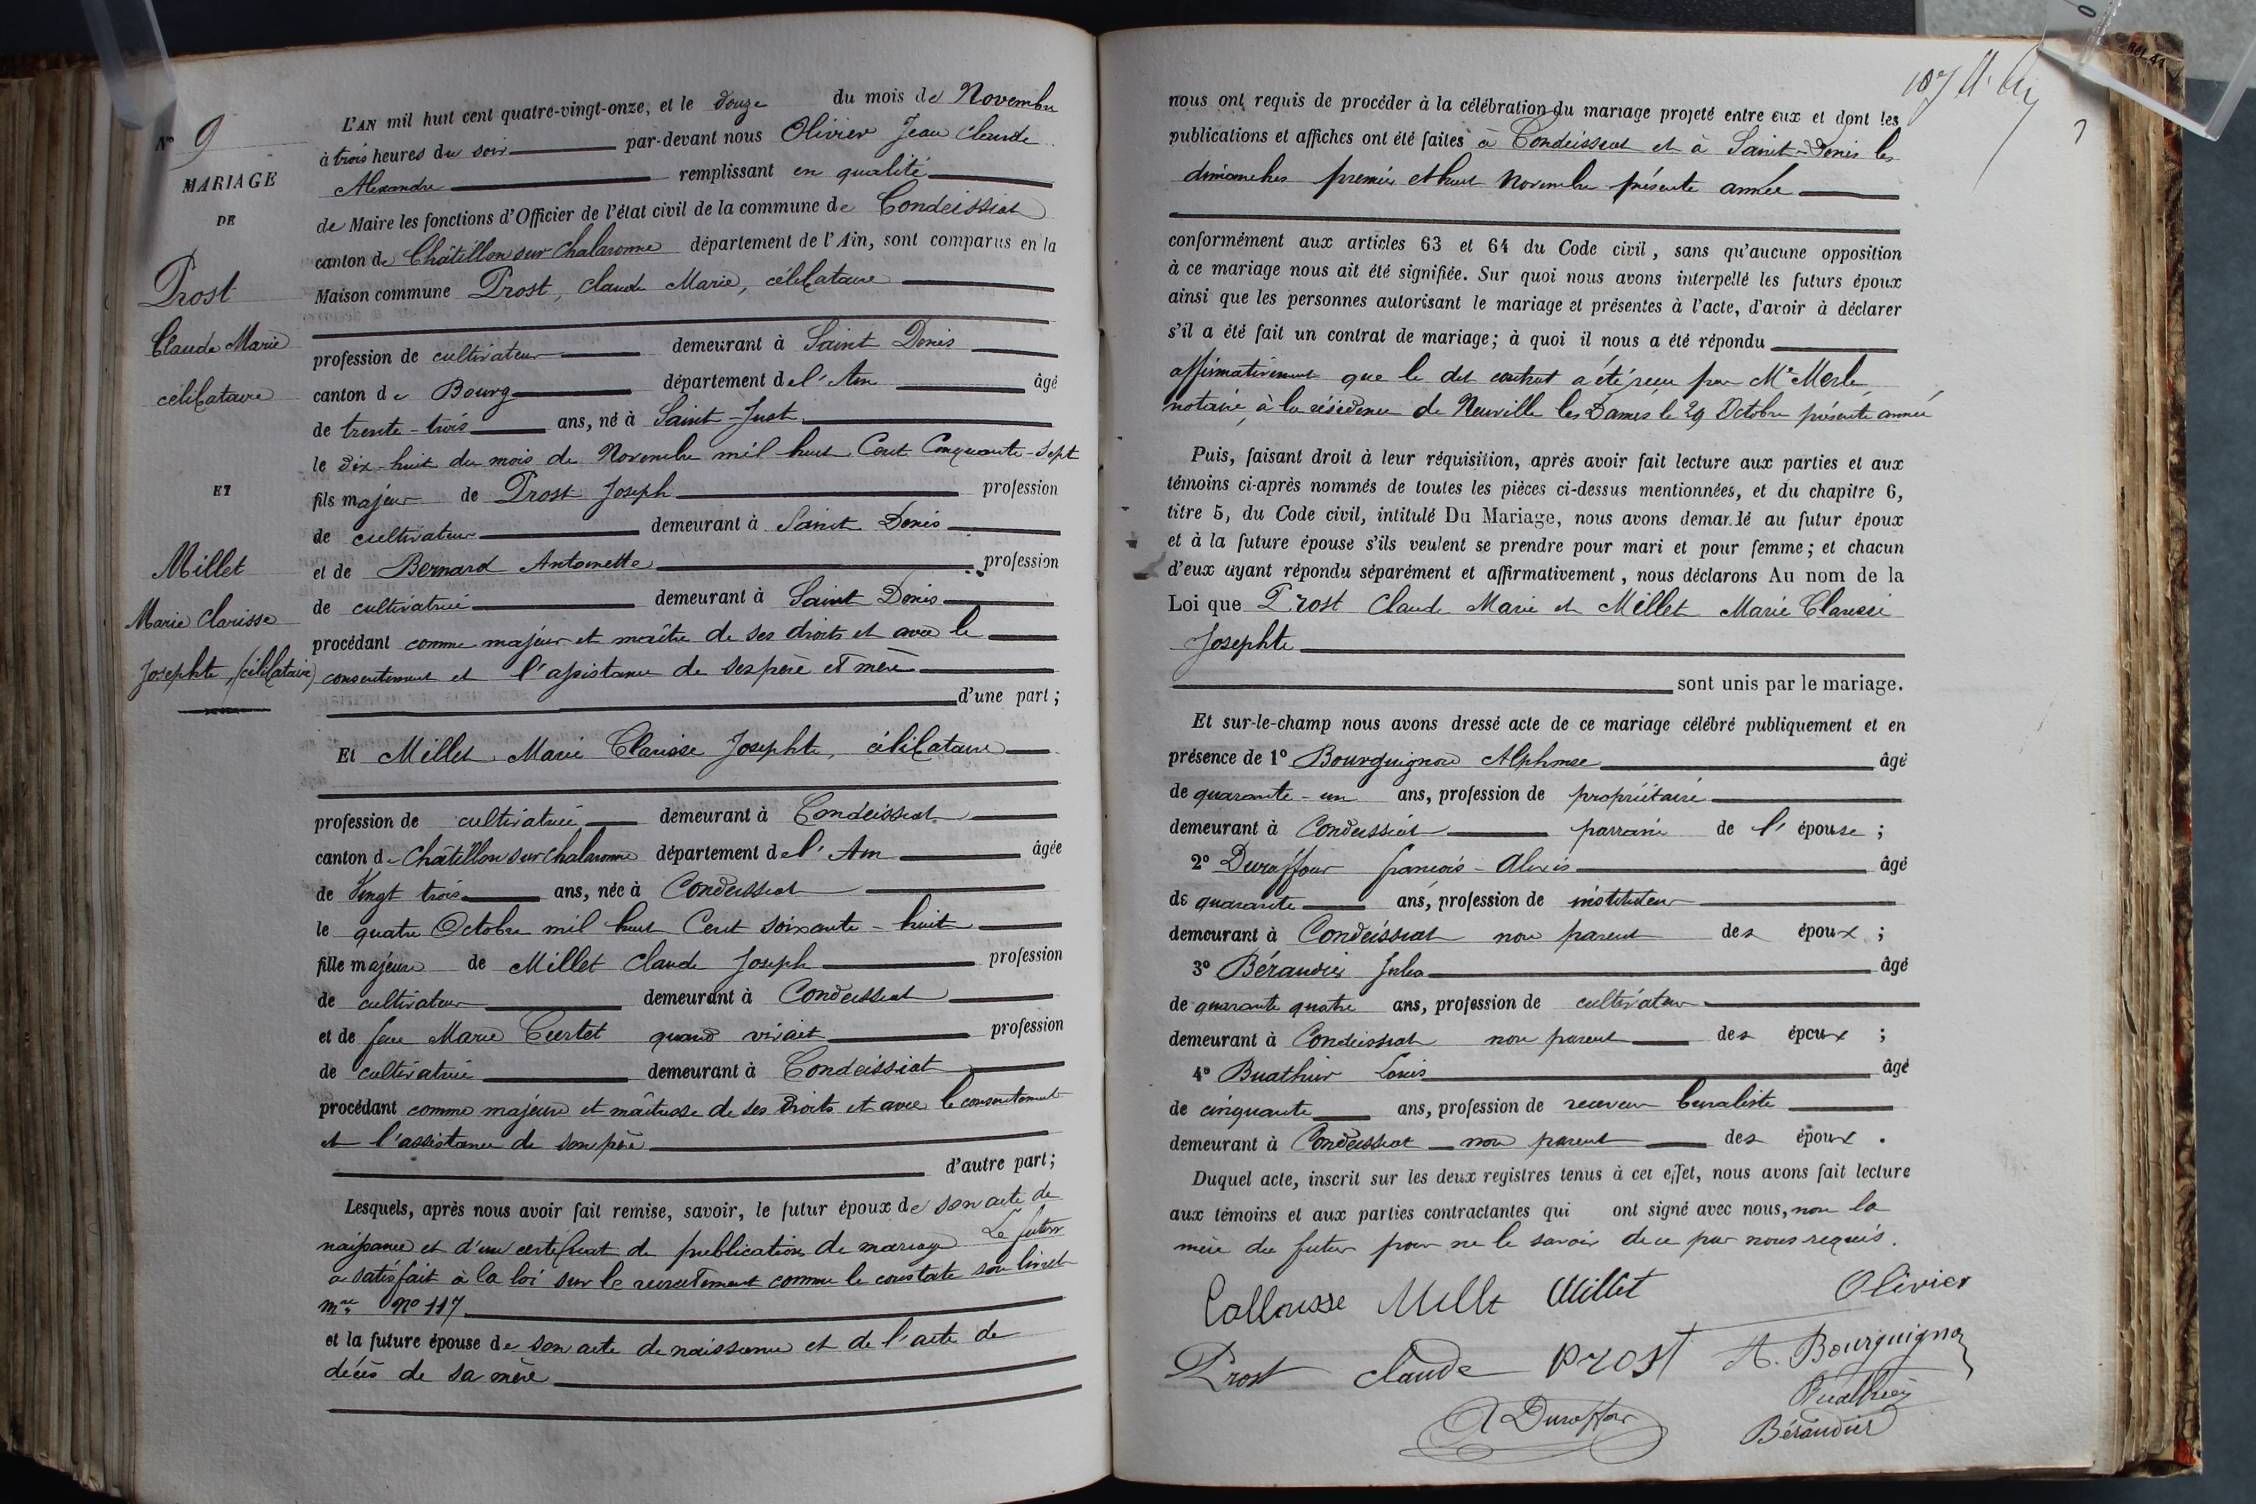 N° 9
MARIAGE
DE
Prost
Claude Marie
célibataire
ET
Millet
Marie Clarisse
Josephte, (célibataire)
L'AN mil huit cent quatre-vingt-onze, et le douze du mois de Novembre
à trois heures du soir par-devant nous Olivier Jean Claude
Alexandre remplissant en qualité
de Maire les fonctions d'Officier de l'état civil de la commune de Condeissiat
canton de Châtillon sur Chalaronne département de l'Ain, sont comparus en la
Maison commune Prost, Claude Marie, célibataire
profession de cultivateur demeurant à Saint Denis
canton de Bourg département de l'Ain âgé
de trente-trois ans, né à Saint-Just
le dix-huit du mois de Novembre mil huit Cent Cinquante-Sept
fils majeur de Prost Joseph profession
de cultivateur demeurant à Saint Denis
et de Bernard Antoinette profession
de cultivatrice demeurant à Saint Denis
procédant comme majeur et maître de ses droits et avec le
consentement et l'assistance de ses père et mère
d'une part;
Et Millet Marie Clarisse Josephte, célibataire
profession de cultivatrice demeurant à Condeissiat
canton de Châtillon sur Chalaronne département de l'Ain âgée
de Vingt trois ans, née à Condeissiat
le quatre Octobre mil huit Cent soixante-huit
fille majeure de Millet Claude Joseph profession
de cultivateur demeurant à Condeissiat
et de feue Marie Curtet quand vivait profession
de cultivatrice demeurant à Condeissiat
procédant comme majeure et maîtresse de ses droits et avec le consentement
et l'assistance de son père
d'autre part;
Lesquels, après nous avoir fait remise, savoir, le futur époux de son acte de
naissance et d'un certificat de publications de mariage Le futur
a satisfait à la loi sur le recrutement comme le constate son livret
mre No 117
et la future épouse de son acte de naissance et de l'acte de
décès de sa mère
107
nous ont requis de procéder à la célébration du mariage projeté entre eux et dont les
publications et affiches ont été faites à Condeissiat et à Saint-Denis les
dimanches premier et huit Novembre présente année
conformément aux articles 63 et 64 du Code civil, sans qu'aucune opposition
à ce mariage nous ait été signifiée. Sur quoi nous avons interpellé les futurs époux
ainsi que les personnes autorisant le mariage et présentes à l'acte, d'avoir à déclarer
s'il a été fait un contrat de mariage; à quoi il nous a été répondu
affirmativement que le dit contrat a été reçu par Me Merle
notaire, à la résidence de Neuville les Dames le 29 Octobre présente année
Puis, faisant droit à leur réquisition, après avoir fait lecture aux parties et aux
témoins ci-après nommés de toutes les pièces ci-dessus mentionnées, et du chapitre 6,
titre 5, du Code civil, intitulé Du Mariage, nous avons demandé au futur époux
et à la future épouse s'ils veulent se prendre pour mari et pour femme; et chacun
d'eux ayant répondu séparément et affirmativement, nous déclarons Au nom de la
Loi que Prost Claude Marie et Millet Marie Clarisse
Josephte
sont unis par le mariage.
Et sur-le-champ nous avons dressé acte de ce mariage célébré publiquement et en
présence de 1° Bourguignon Alphonse âgé
de quarante-un ans, profession de propriétaire
demeurant à Condeissiat parrain de l'épouse;
2° Duraffour françois-Alexis âgé
de quarante ans, profession de instituteur
demeurant à Condeissiat non parent des époux;
3° Béraudier Jules âgé
de quarante quatre ans, profession de cultivateur
demeurant à Condeissiat non parent des époux;
4° Buathier Louis âgé
de cinquante ans, profession de receveur buraliste
demeurant à Condeissiat non parent des époux.
Duquel acte, inscrit sur les deux registres tenus à cet effet, nous avons fait lecture
aux témoins et aux parties contractantes qui ont signé avec nous, non la
mère du futur pour ne le savoir de ce par nous requis.
Millet Olivier
Prost Claude Prost A. Bourguignon
Buathier
A Duraffour Béraudier